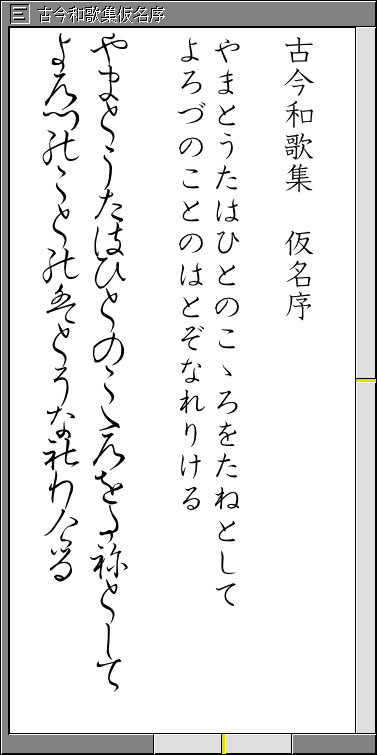 古今和歌集仮名序
古今和歌集　仮名序
やまとうたはひとのこゝろをたねとして
よろづのことのはとぞなれりける
やまとうたはひとのこゝろをたねとして
よろつのことのはとそなれりける